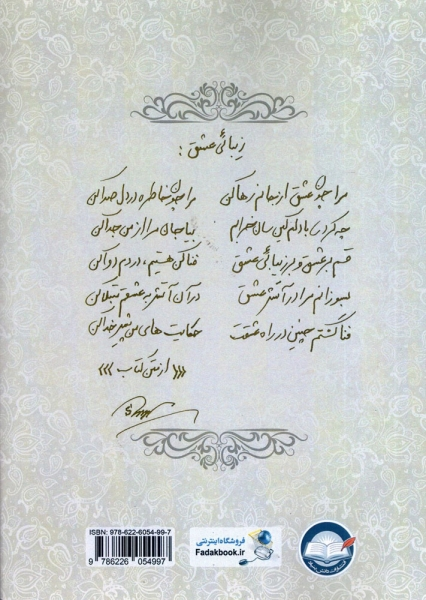 زیبائی عشق :
مرا جان عشق از تنم رها کن مرا چون خاطره در دل صدا کن
چه کردی با دلم ای سال خرابم بیا جان مرا از من جدا کن
قسم بر عشق و بر زیبائی عشق فنا کن هستیم ، دردم دوا کن
بسوزانم مرا در آتش عشق در آن آتش به عشق مبتلا کن
فنا گشتم چنین در راه عشقت حکایت های من پیش خدا کن
((( از متن کتاب )))
ISBN: 978-622-6054-99-7
9 786226 054997
فروشگاه اینترنتی
Fadakbook.ir